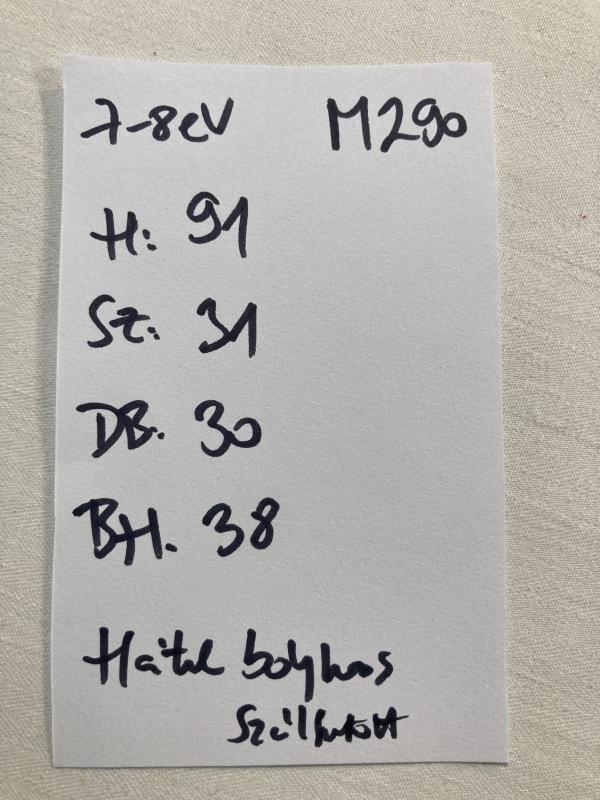 7-8 eV M290
H: 91
Sz: 31
DB. 30
BH. 38
Hátul bolyhos